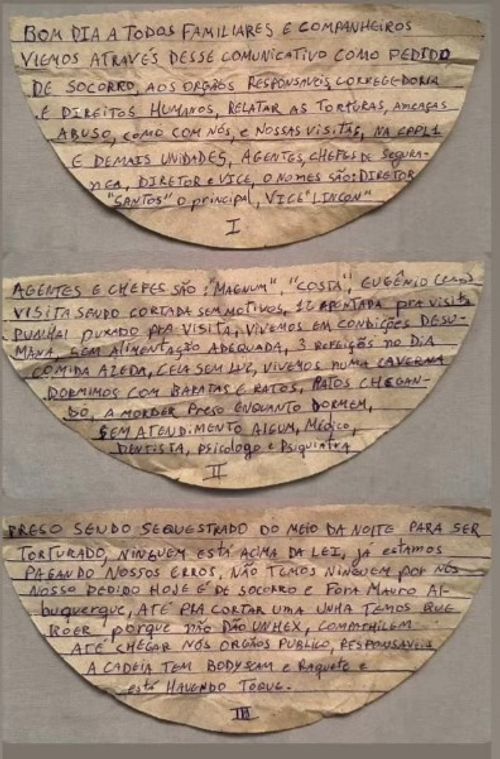 BOM DIA A TODOS FAMILIARES E COMPANHEIROS
VIEMOS ATRAVÉS DESSE COMUNICATIVO COMO PEDIDO
DE SOCORRO, AOS ORGÃOS RESPONSAVEIS, CORREGEDORIA
E DIREITOS HUMANOS, RELATAR AS TORTURAS, AMEAÇAS
ABUSO, COMO COM NÓS, E NOSSAS VISITAS, NA CPPL1
E DEMAIS UNIDADES, AGENTES, CHEFES DE SEGURA-
NÇA, DIRETOR E VICE, O NOMES SÃO: DIRETOR
"SANTOS" O principal, VICE "LINCON"
I
AGENTES E CHEFES SÃO: "MAGNUM", "COSTA", EUGÊNIO
VISITA SENDO CORTADA SEM MOTIVOS, 12 APONTADA PRA VISITA
PUNHAL PUXADO PRA VISITA, VIVEMOS EM CONDIÇÕES DESU-
MANA, SEM ALIMENTAÇÃO ADEQUADA, 3 REFEIÇÕES NO DIA
COMIDA AZEDA, CELA SEM LUZ, VIVEMOS NUMA CAVERNA
DORMIMOS COM BARATAS E RATOS, RATOS CHEGAN-
DO, A MORDER PRESO ENQUANTO DORMEM,
SEM ATENDIMENTO ALGUM, MÉDICO,
DENTISTA, psicologo e Psiquiatra
II
PRESO SENDO SEQUESTRADO DO MEIO DA NOITE PARA SER
TORTURADO, NINGUEM ESTÁ ACIMA DA LEI, JÁ estamos
PAGANDO NOSSOS ERROS, NÃO TEMOS NINGUEM POR NÓS
NOSSO PEDIDO HOJE É DE SOCORRO E FORA MAURO Al-
buquerque, ATÉ PRA CORTAR UMA UNHA TEMOS QUE
ROER porque não DÃO UNHEX, COMPATHILEM
ATÉ CHEGAR NÓS ORGÃOS PUBLICO, RESPONSAVEIS
A CADEIA TEM BODYSCAM e Raquete e
está HAVENDO TOQUE.
III